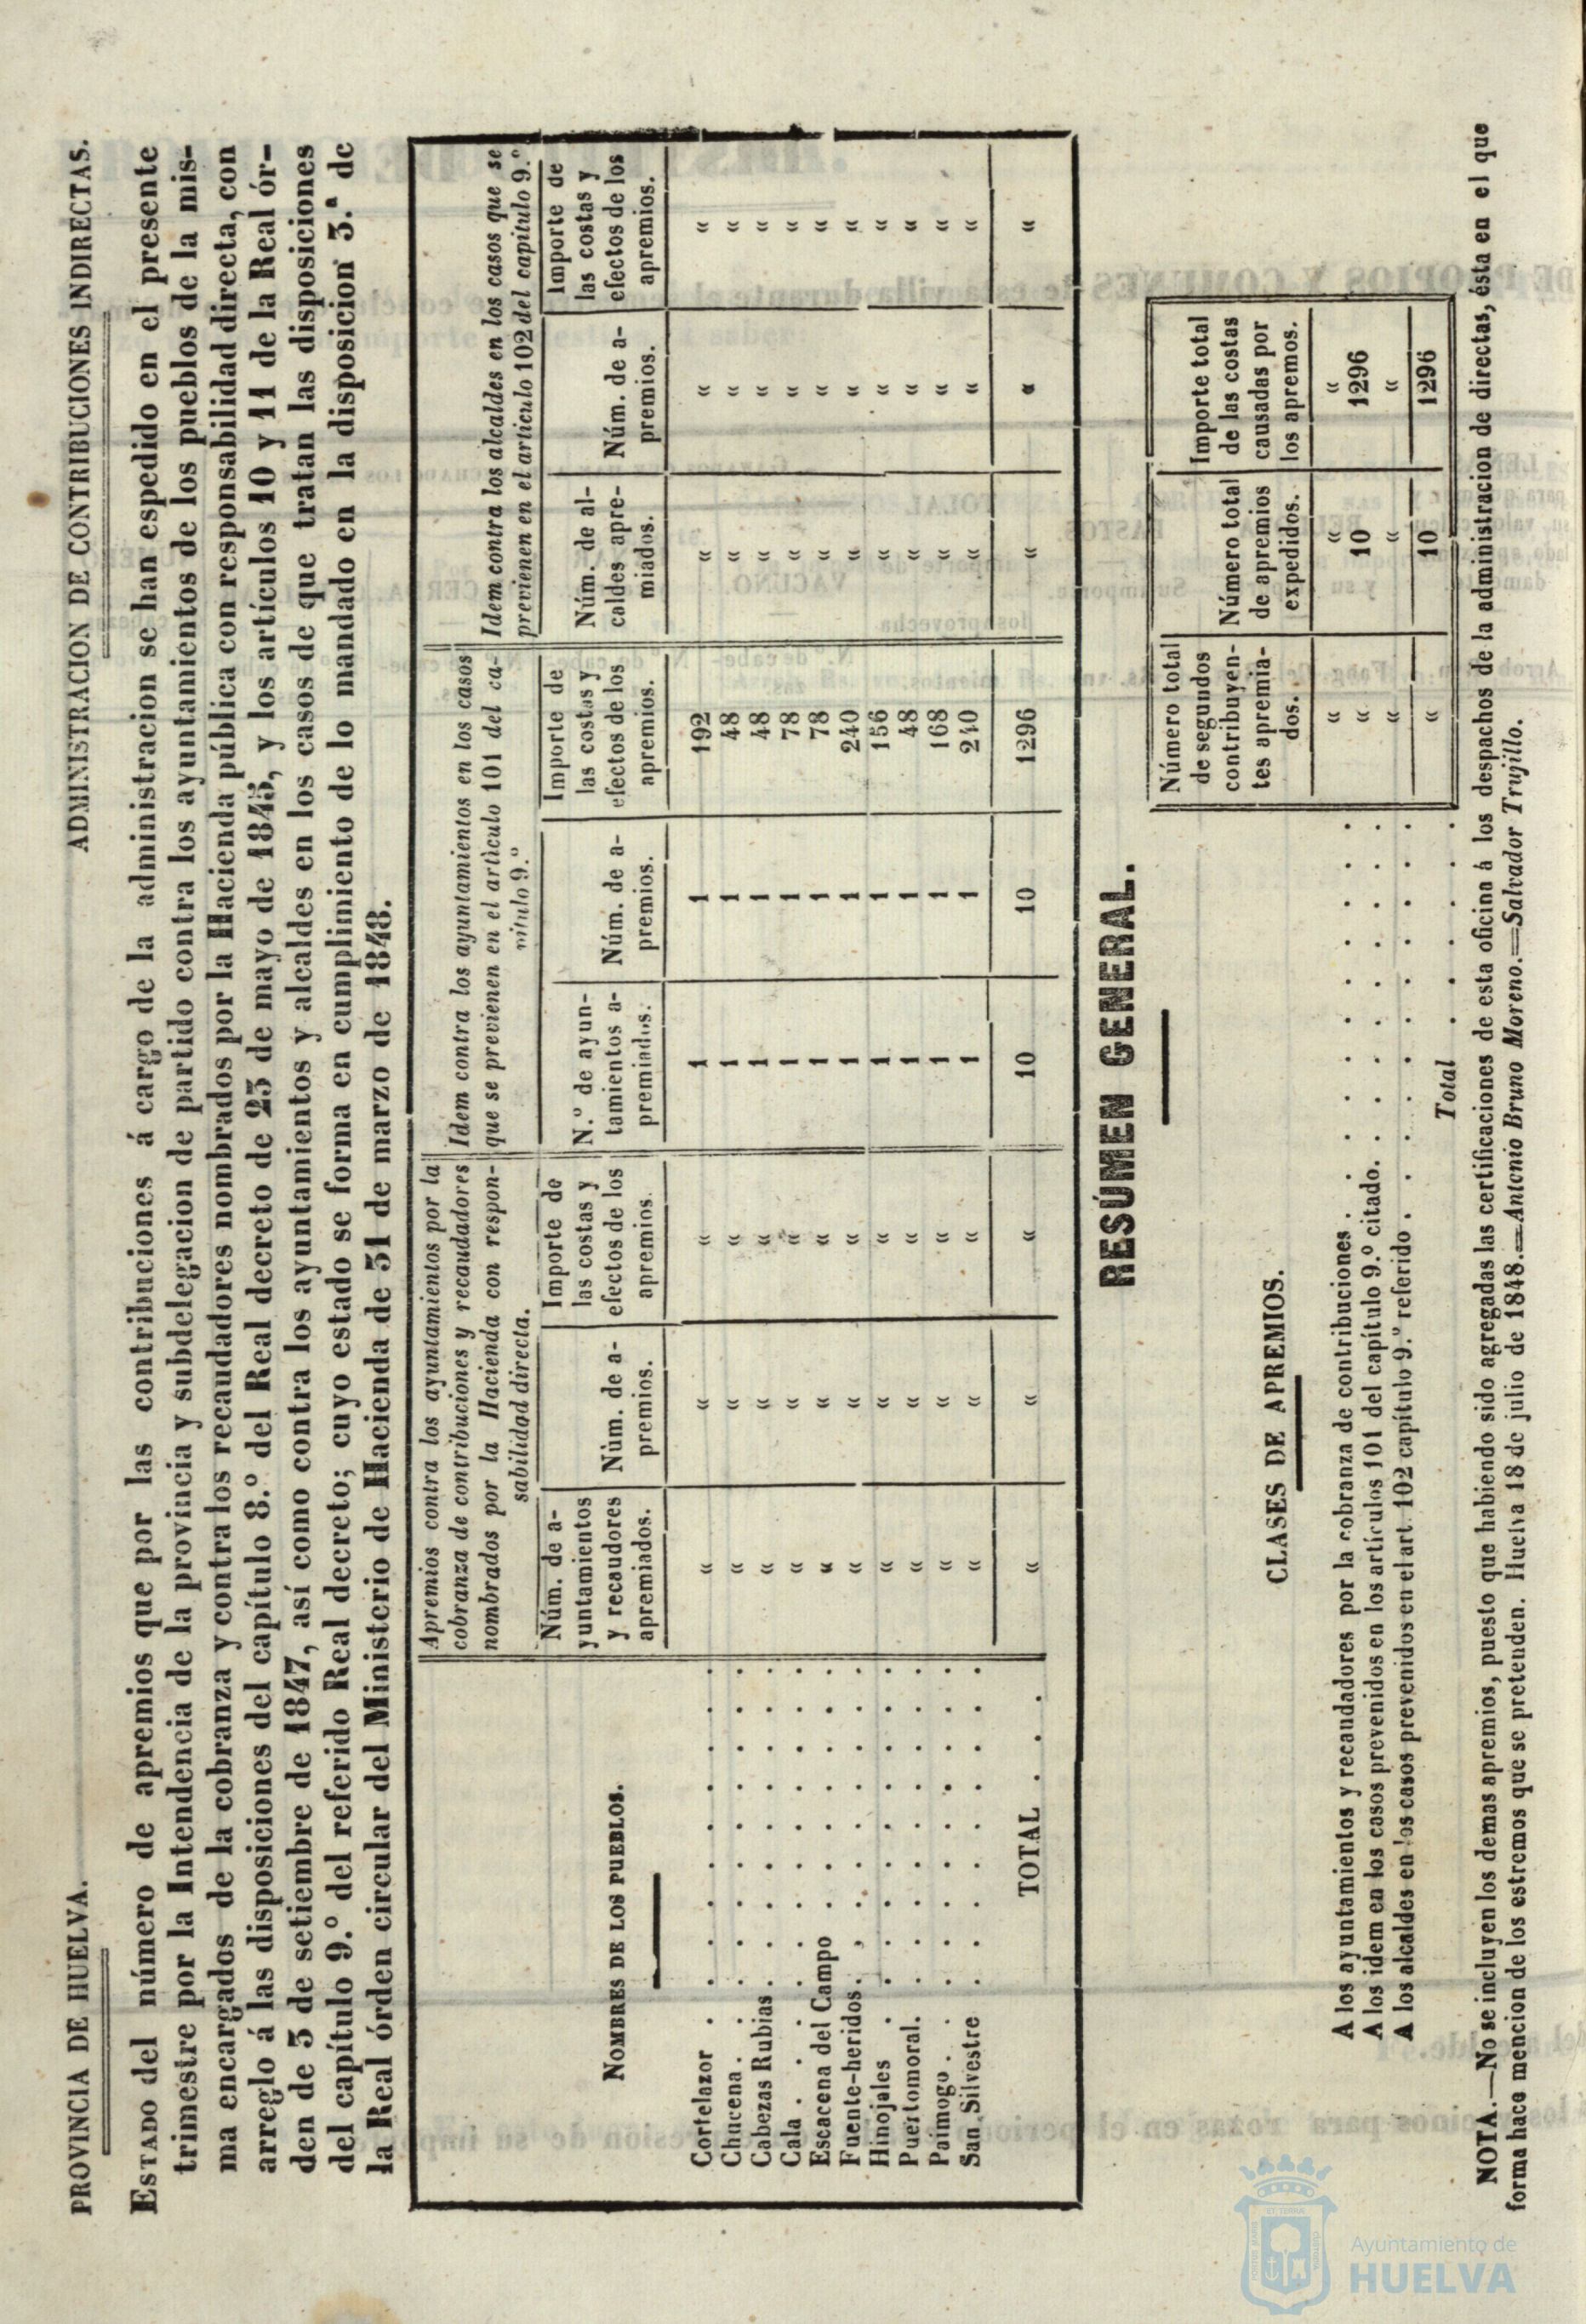 PROVINCIA DE HUELVA. ADMINISTRACION DE CONTRIBUCIONES INDIRECTAS.
ESTADO del número de apremios que por las contribuciones á cargo de la administracion se han espedido en el presente
trimestre por la Intendencia de la provincia y subdelegacion de partido contra los ayuntamientos de los pueblos de la mis-
ma encargados de la cobranza y contra los recaudadores nombrados por la Hacienda pública con responsabilidad directa, con
arreglo á las disposiciones del capítulo 8.º del Real decreto de 23 de mayo de 1845, y los artículos 10 y 11 de la Real ór-
den de 3 de setiembre de 1847, así como contra los ayuntamientos y alcaldes en los casos de que tratan las disposiciones
del capítulo 9.º del referido Real decreto; cuyo estado se forma en cumplimiento de lo mandado en la disposicion 3.ª de
la Real órden circular del Ministerio de Hacienda de 31 de marzo de 1848.
NOMBRES DE LOS PUEBLOS.
Apremios contra los ayuntamientos por la
cobranza de contribuciones y recaudadores
nombrados por la Hacienda con respon-
sabilidad directa.
Idem contra los ayuntamientos en los casos
que se previenen en el artículo 101 del ca-
pítulo 9.º
Idem contra los alcaldes en los casos que se
previenen en el artículo 102 del capítulo 9.º
Núm. de a-
yuntamientos
y recaudores
apremiados.
Núm. de a-
premios.
Importe de
las costas y
efectos de los
apremios.
N.º de ayun-
tamientos a-
premiados.
Núm. de a-
premios.
Importe de
las costas y
efectos de los
apremios.
Núm. de al-
caldes apre-
miados.
Núm. de a-
premios.
Importe de
las costas y
efectos de los
apremios.
Cortelazor . . . . . . . . . . « « « 1 1 192 « « «
Chucena . . . . . . . . . . . « « « 1 1 48 « « «
Cabezas Rubias . . . . . . . . . « « « 1 1 48 « « «
Cala . . . . . . . . . . . . « « « 1 1 78 « « «
Escacena del Campo . . . . . . . . « « « 1 1 78 « « «
Fuente-heridos . . . . . . . . . . « « « 1 1 240 « « «
Hinojales . . . . . . . . . . « « « 1 1 156 « « «
Puertomoral. . . . . . . . . . . « « « 1 1 48 « « «
Paimogo . . . . . . . . . . . « « « 1 1 168 « « «
San Silvestre . . . . . . . . . . « « « 1 1 240 « « «
TOTAL . . . « « « 10 10 1296 « « «
RESÚMEN GENERAL.
CLASES DE APREMIOS.
Número total
de segundos
contribuyen-
tes apremia-
dos.
Número total
de apremios
expedidos.
Importe total
de las costas
causadas por
los apremos.
A los ayuntamientos y recaudadores por la cobranza de contribuciones . . . . . . . . . . . « « «
A los idem en los casos prevenidos en los artículos 101 del capítulo 9.º citado. . . . . . . . . . . « 10 1296
A los alcaldes en los casos prevenidos en el art. 102 capítulo 9.º referido . . . . . . . . . . . « « «
Total . . . . . . « 10 1296
NOTA.—No se incluyen los demas apremios, puesto que habiendo sido agregadas las certificaciones de esta oficina á los despachos de la administracion de directas, ésta en el que
forma hace mencion de los estremos que se pretenden. Huelva 18 de julio de 1848.—Antonio Bruno Moreno.—Salvador Trujillo.
Ayuntamiento de
HUELVA